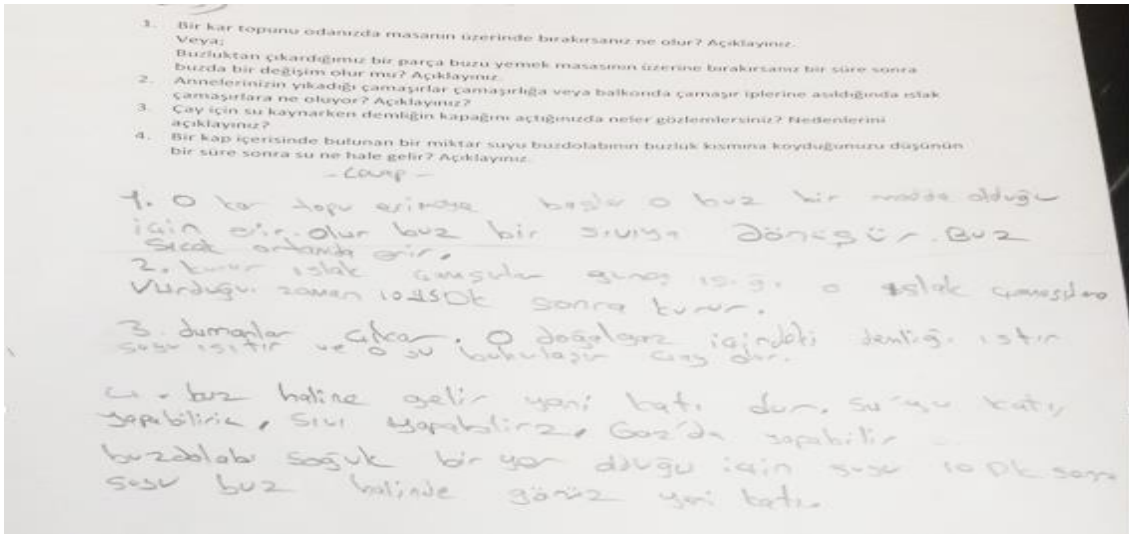 1. Bir kar topunu odanızda masanın üzerinde bırakırsanız ne olur? Açıklayınız.
Veya;
Buzluktan çıkardığımız bir parça buzu yemek masasının üzerine bırakırsanız bir süre sonra
buzda bir değişim olur mu? Açıklayınız.
2. Annelerinizin yıkadığı çamaşırlar çamaşırlığa veya balkonda çamaşır iplerine asıldığında ıslak
çamaşırlara ne oluyor? Açıklayınız?
3. Çay için su kaynarken demliğin kapağını açtığınızda neler gözlemlersiniz? Nedenlerini
açıklayınız?
4. Bir kap içerisinde bulunan bir miktar suyu buzdolabının buzluk kısmına koyduğunuzu düşünün
bir süre sonra su ne hale gelir? Açıklayınız.
- Cevap -
1. O kar topu erimeye başlar o buz bir madde olduğu
için erir. olur buz bir sıvıya Dönüşür. Buz
Sıcak ortamda erir.
2. kurur ıslak güneş ışığı o ıslak
Vurduğu zaman Dk sonra kurur.
3. dumanlar çıkar. O doğalgaz içindeki demliği ısıtır
suyu ısıtır ve o su
4. buz haline gelir yani katı dur. Su'yu katı
yapabiliriz, Sıvı yapabiliriz, Gaz'da yapabilir
buzdolabı soğuk bir yer olduğu için suyu 10 Dk sonra
suyu buz halinde yani katı.